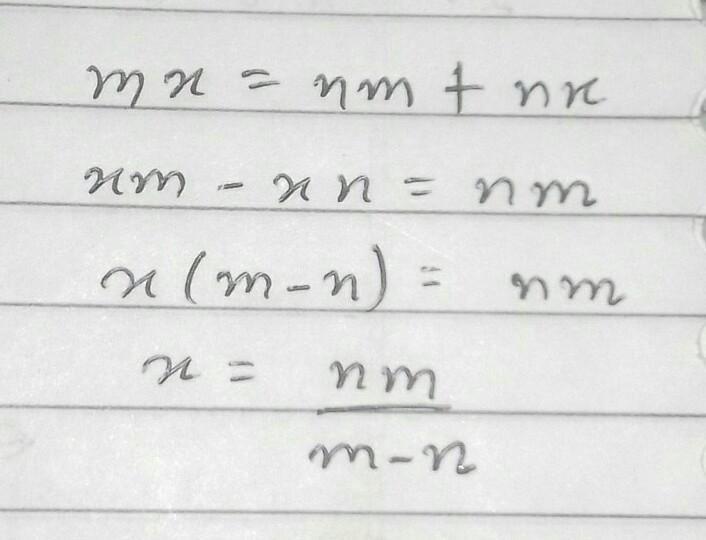 mx = nm + nx
xm - xn = nm
x(m-n) = nm
x = nm
m-n